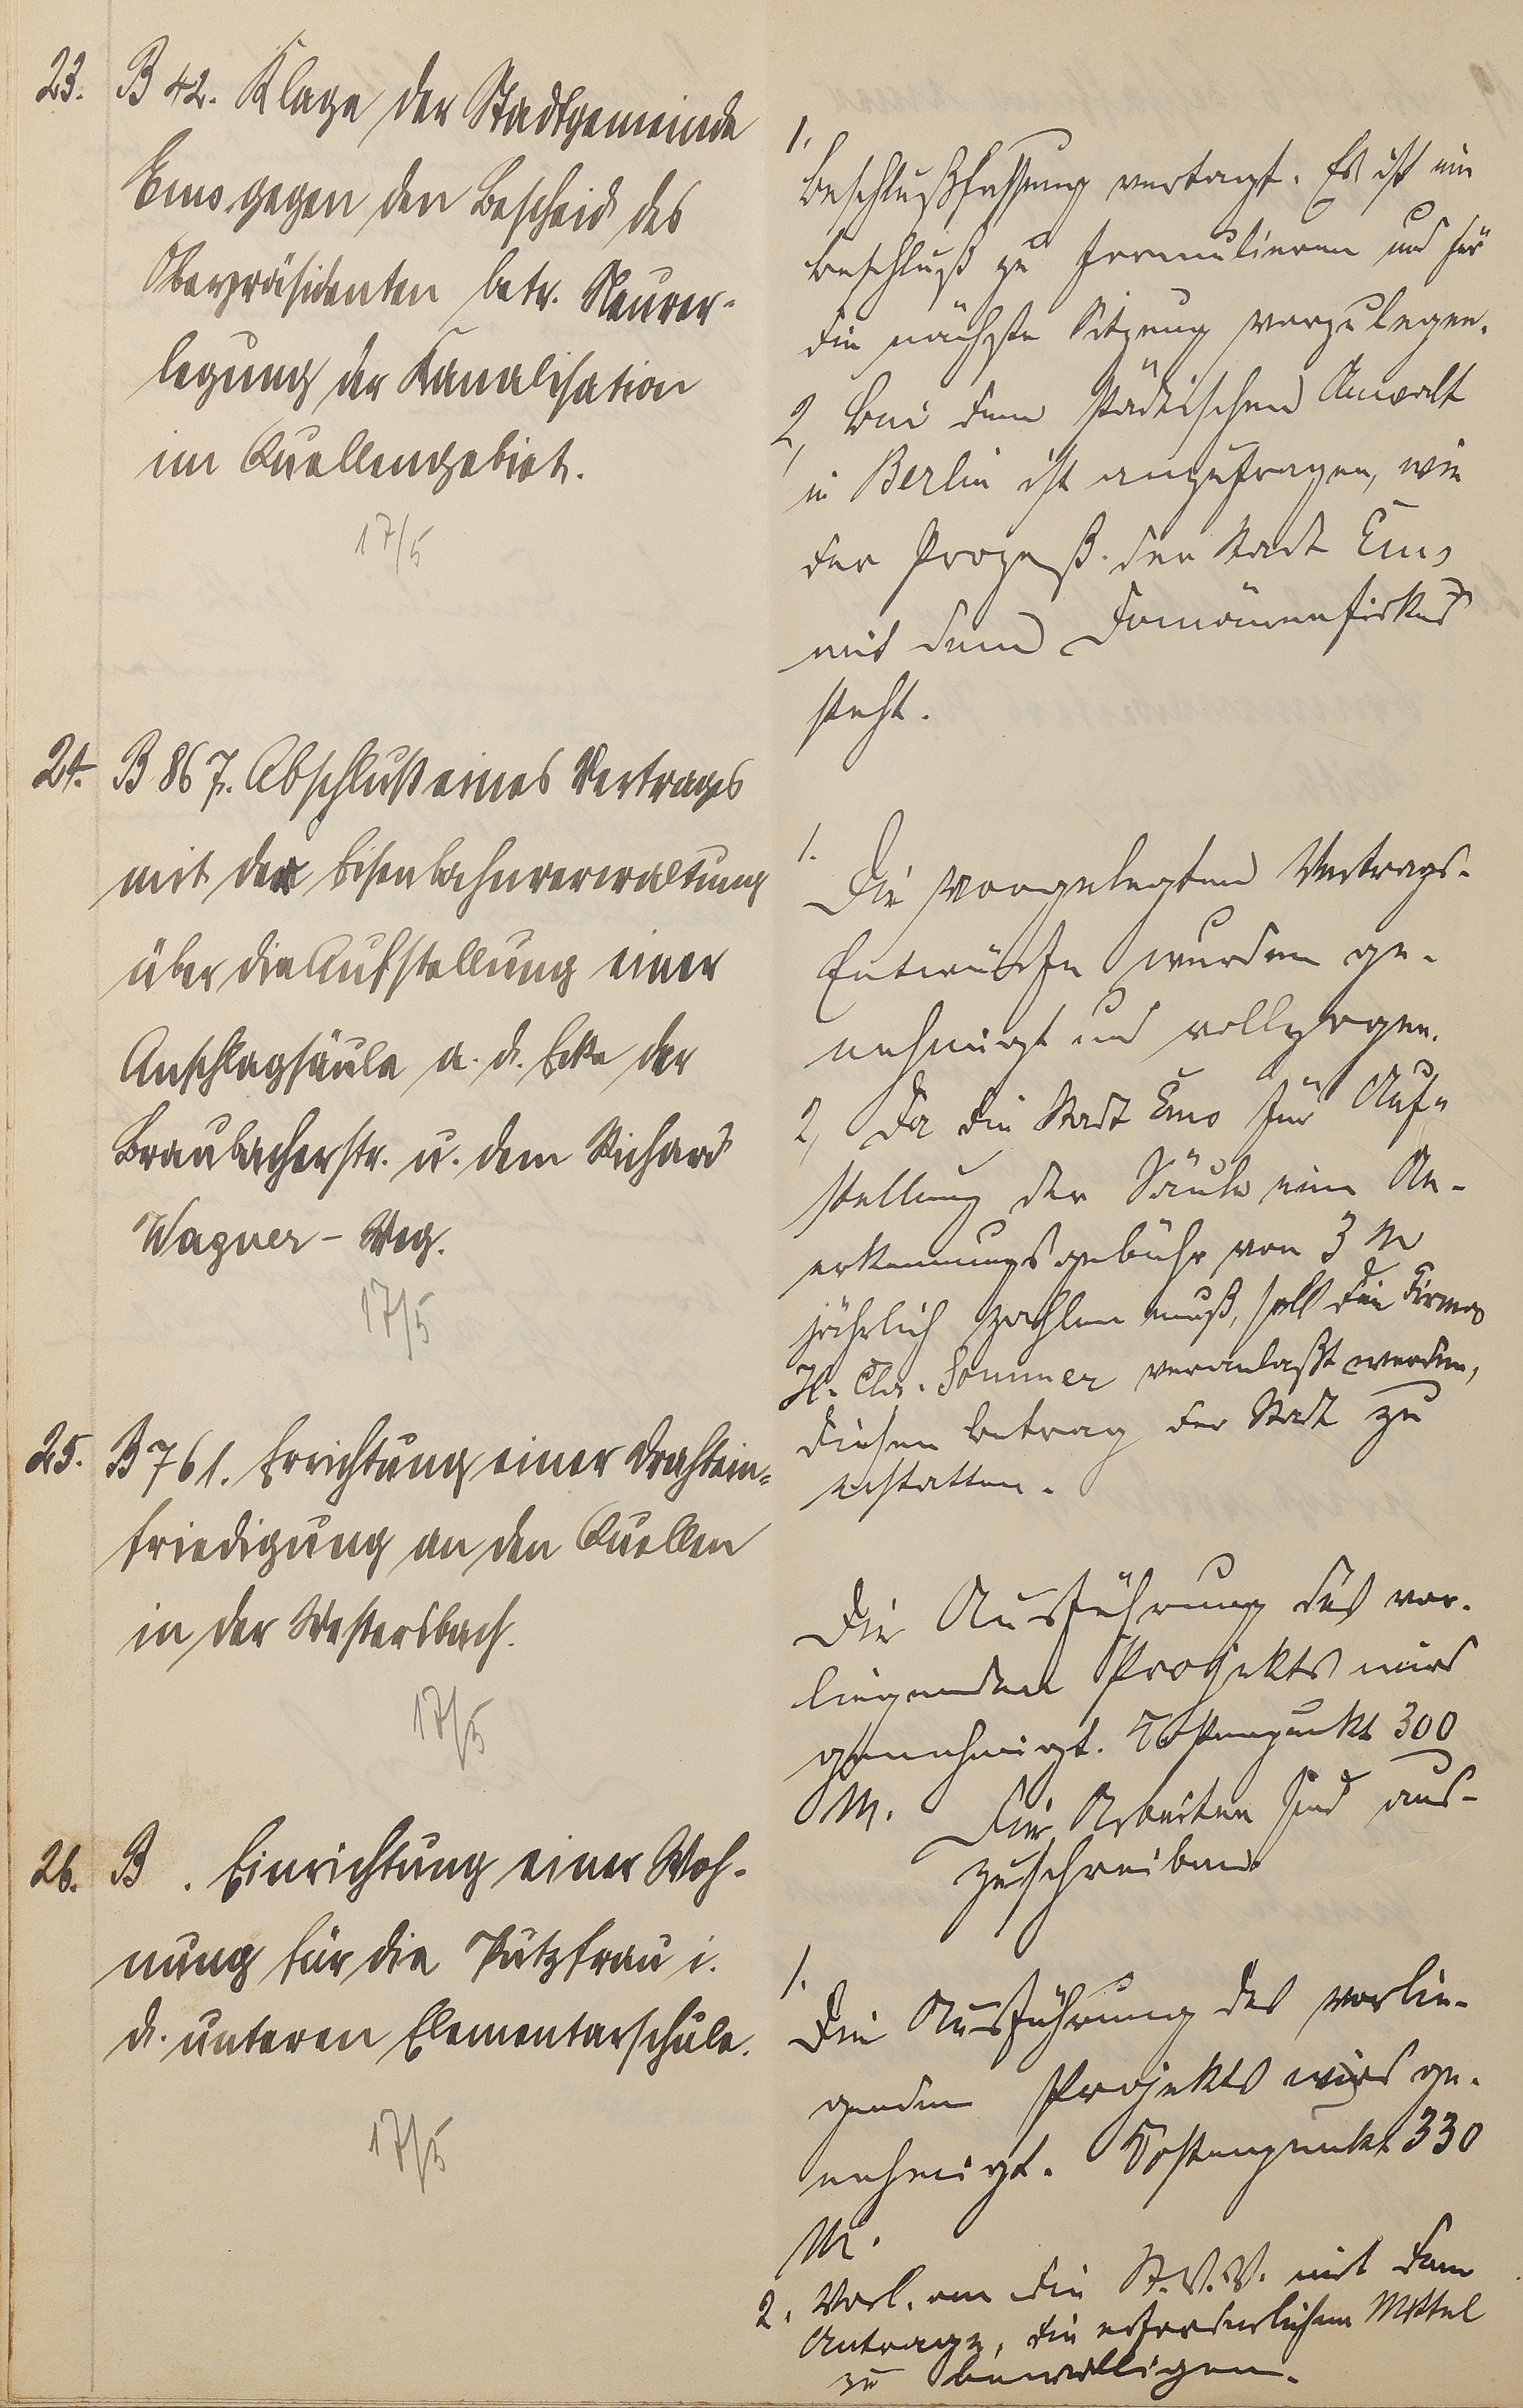 23. B 42. Klage der Stadtgemeinde
Ems gegen den Bescheid des
Oberpräsidenten betr. Neuver-
legung der Kanalisation
im Quellengebiet.
17/5
1.
Beschlußfassung vertagt. Es ist ein
Beschluß zu formulieren und für
die nächste Sitzung vorzulegen.
2, Bei dem städtischen Anwalt
in Berlin ist anzufragen, wie
der Prozeß der Stadt Ems
mit dem Domänenfiskus
steht.
24. B 867. Abschluß eines Vertrages
mit der Eisenbahnverwaltung
über die Aufstellung einer
Anschlagsäule a. d. Ecke der
Braubacherstr. u. dem Richard
Wagner-Weg.
17/5
1.
Die vorgelegten Vertrags-
Entwürfe wurden ge-
nehmigt und vollzogen.
2, Da die Stadt Ems für Auf-
stellung der Säule eine An-
erkennungsgebühr von 3 M
jährlich zahlen muß, soll die Firma
H. Chr. Sommer veranlaßt werden,
diesen Betrag der Stadt zu
erstatten.
25. B 761. Errichtung einer Drahtein-
friedigung an den Quellen
in der Westersbach.
17/5
Die Ausführung des vor-
liegenden Projekts wird
genehmigt. Kostenpunkt 300
M. Die Arbeiten sind aus-
zuschreiben.
26. B . Einrichtung einer Woh-
nung für die Putzfrau i.
d. unteren Elementarschule.
17/5
1.
Die Ausführung des vorlie-
genden Projekts wird ge-
nehmigt. Kostenpunkt 330
M.
2. Vorl. an die St.V.V. mit dem
Antrage, die erforderlichen Mittel
zu bewilligen.